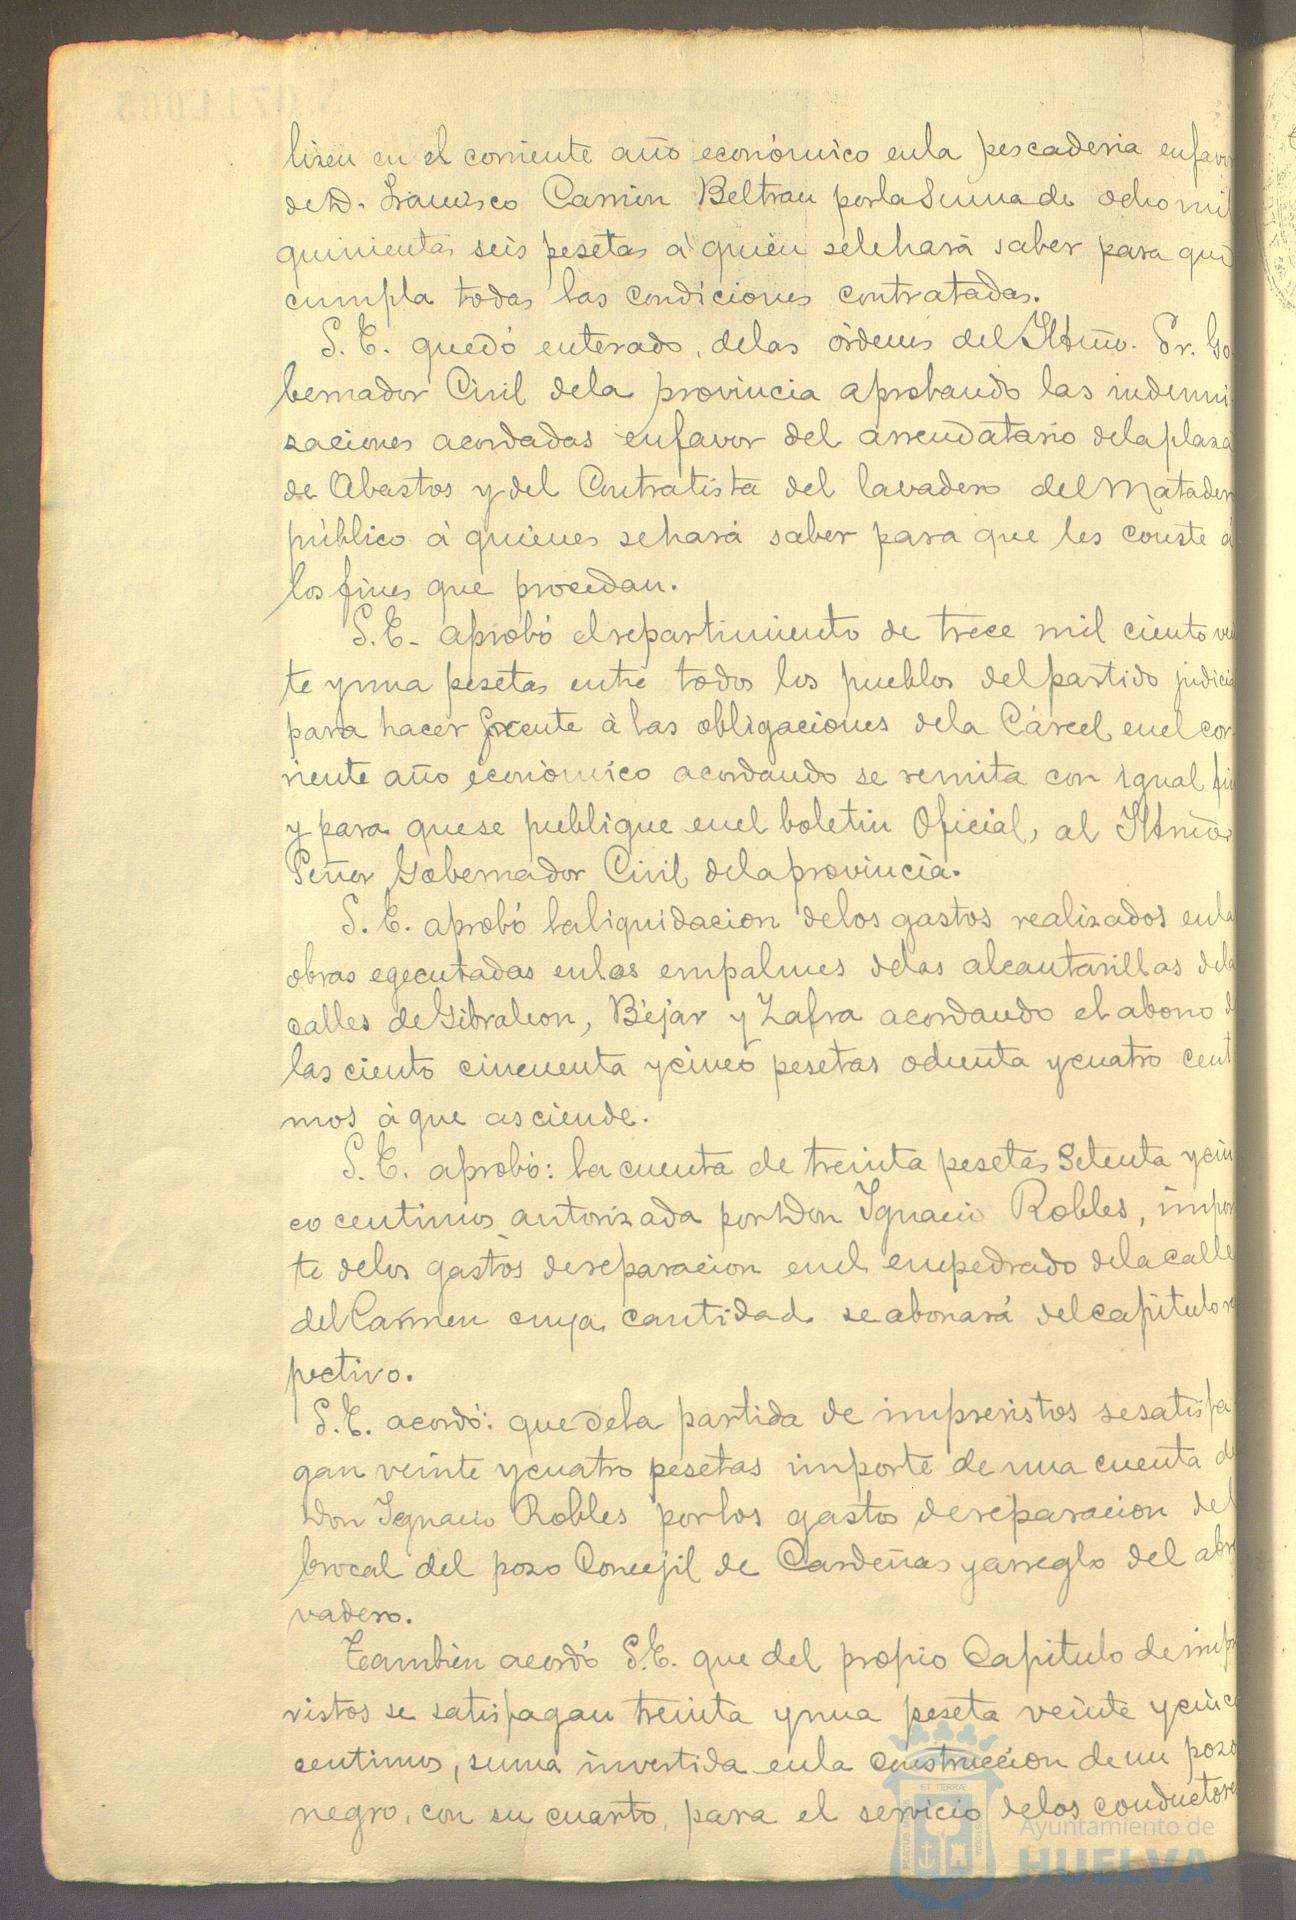 licen en el corriente año económico en la pescaderia en favor
de D. Francisco Carrion Beltran por la Suma de ocho mil
quinientas seis pesetas á quien se le hará saber para que
cumpla todas las condiciones contratadas.
S. E. quedó enterado, de las órdenes del Iltmo. Sr. Go
bernador Civil de la provincia aprobando las indemni
zaciones acordadas en favor del arrendatario de la plaza
de Abastos y del Contratista del lavadero del Matadero
público á quienes se hará saber para que les conste á
los fines que procedan.
S. E. aprobó el repartimiento de trece mil ciento vein
te y una pesetas entre todos los pueblos del partido judicial
para hacer frente á las obligaciones de la Cárcel en el cor
riente año económico acordando se remita con igual fin
y para que se publique en el boletin Oficial, al Iltmo.
Señor Gobernador Civil de la provincia.
S. E. aprobó la liquidacion de los gastos realizados en las
obras egecutadas en los empalmes de las alcantarillas de las
calles de Gibraleon, Béjar y Zafra acordando el abono de
las ciento cincuenta y cinco pesetas ochenta y cuatro centi
mos á que asciende.
S. E. aprobó: la cuenta de treinta pesetas Setenta y cin
co centimos autorizada por Don Ignacio Robles, impor
te de los gastos de reparacion en el empedrado de la calle
del Carmen cuya cantidad se abonará del capitulo res
pectivo.
S. E. acordó: que de la partida de imprevistos se satisfa
gan veinte y cuatro pesetas importe de una cuenta de
Don Ignacio Robles por los gastos de reparacion del
brocal del pozo Concejil de Cardeñas y arreglo del abre
vadero.
Tambien acordó S. E. que del propio Capitulo de impre
vistos se satisfagan treinta y una peseta veinte y cinco
centimos, suma invertida en la construccion de un pozo
negro, con su cuarto, para el servicio de los conductores
Ayuntamiento de
HUELVA